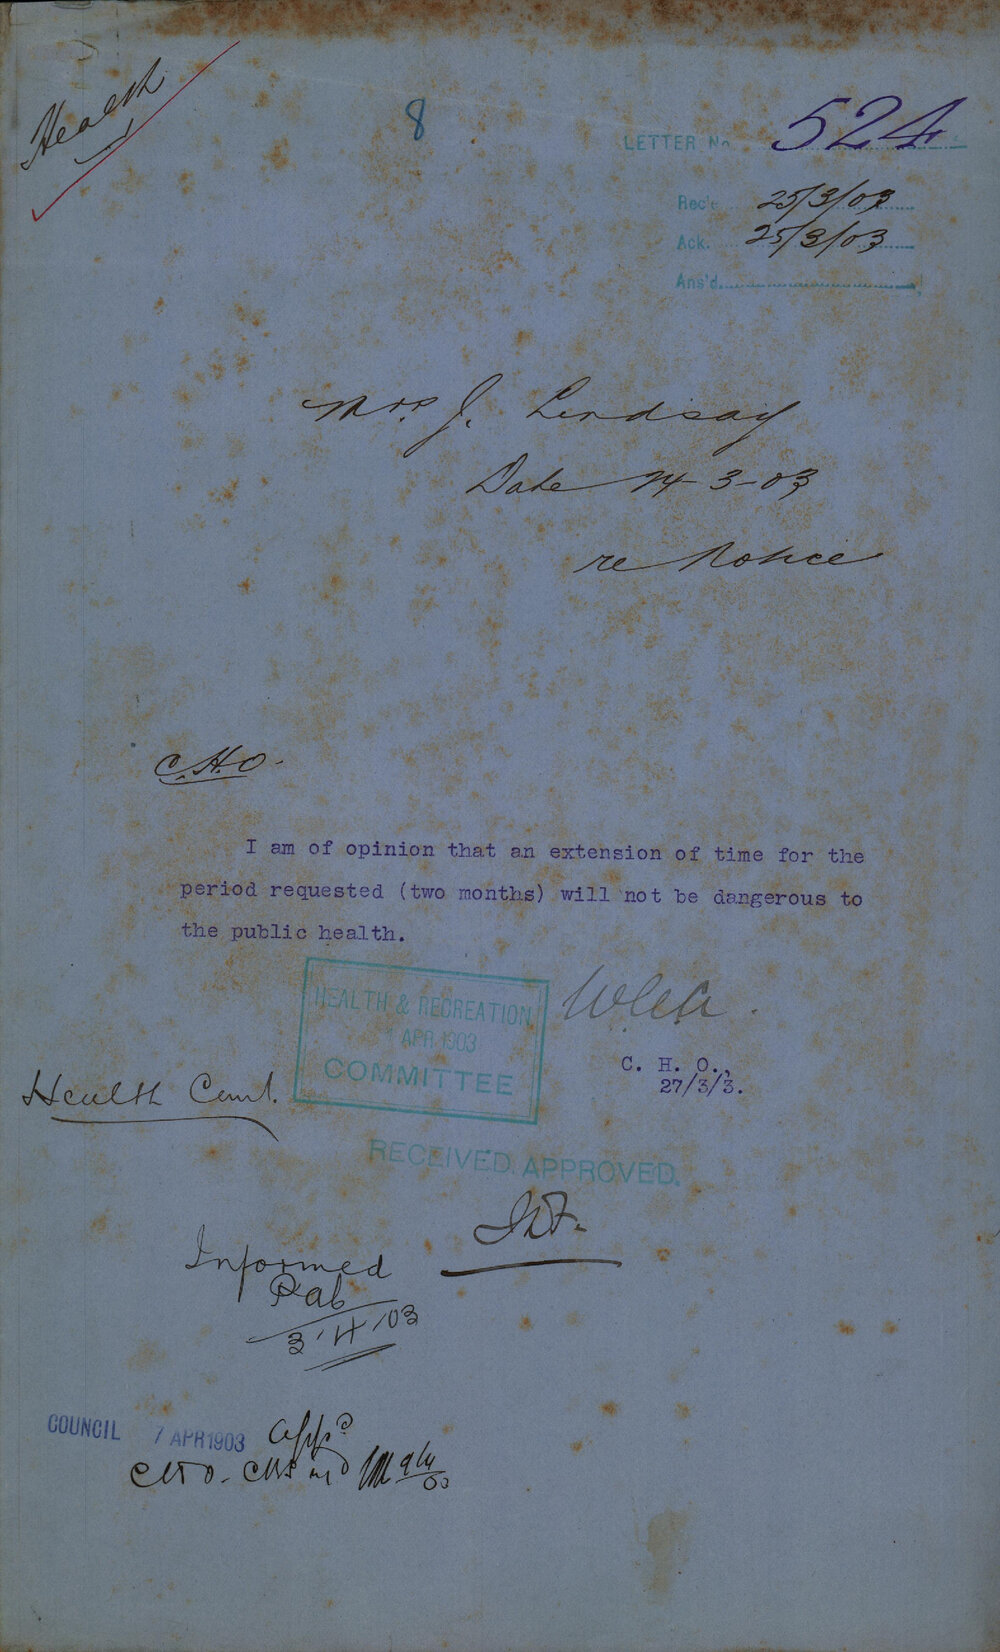 Health
8
LETTER No 524
Rec'd 25/3/03
Ack. 25/3/03
Ans'd
Mrs. J. Lindsay
Date 24-3-03
re Notice
C.H.O.
I am of opinion that an extension of time for the
period requested (two months) will not be dangerous to
the public health.
HEALTH & RECREATION
1 APR 1903
COMMITTEE
C. H. O.,
27/3/3.
Health Comt.
RECEIVED. APPROVED.
Informed
3/4/03
COUNCIL 7 APR 1903 appd
C.H.O.